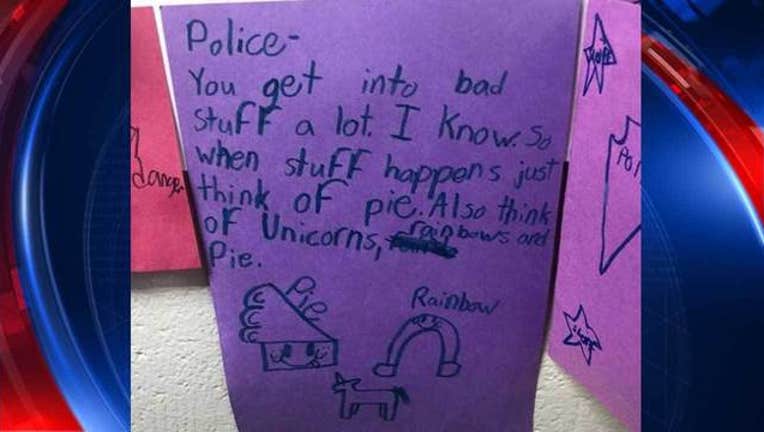 Police-
You get into bad
stuff a lot. I Know. So
when stuff happens just
think of pie. Also think
of Unicorns, rainbows and
Pie.
Pie
Rainbow